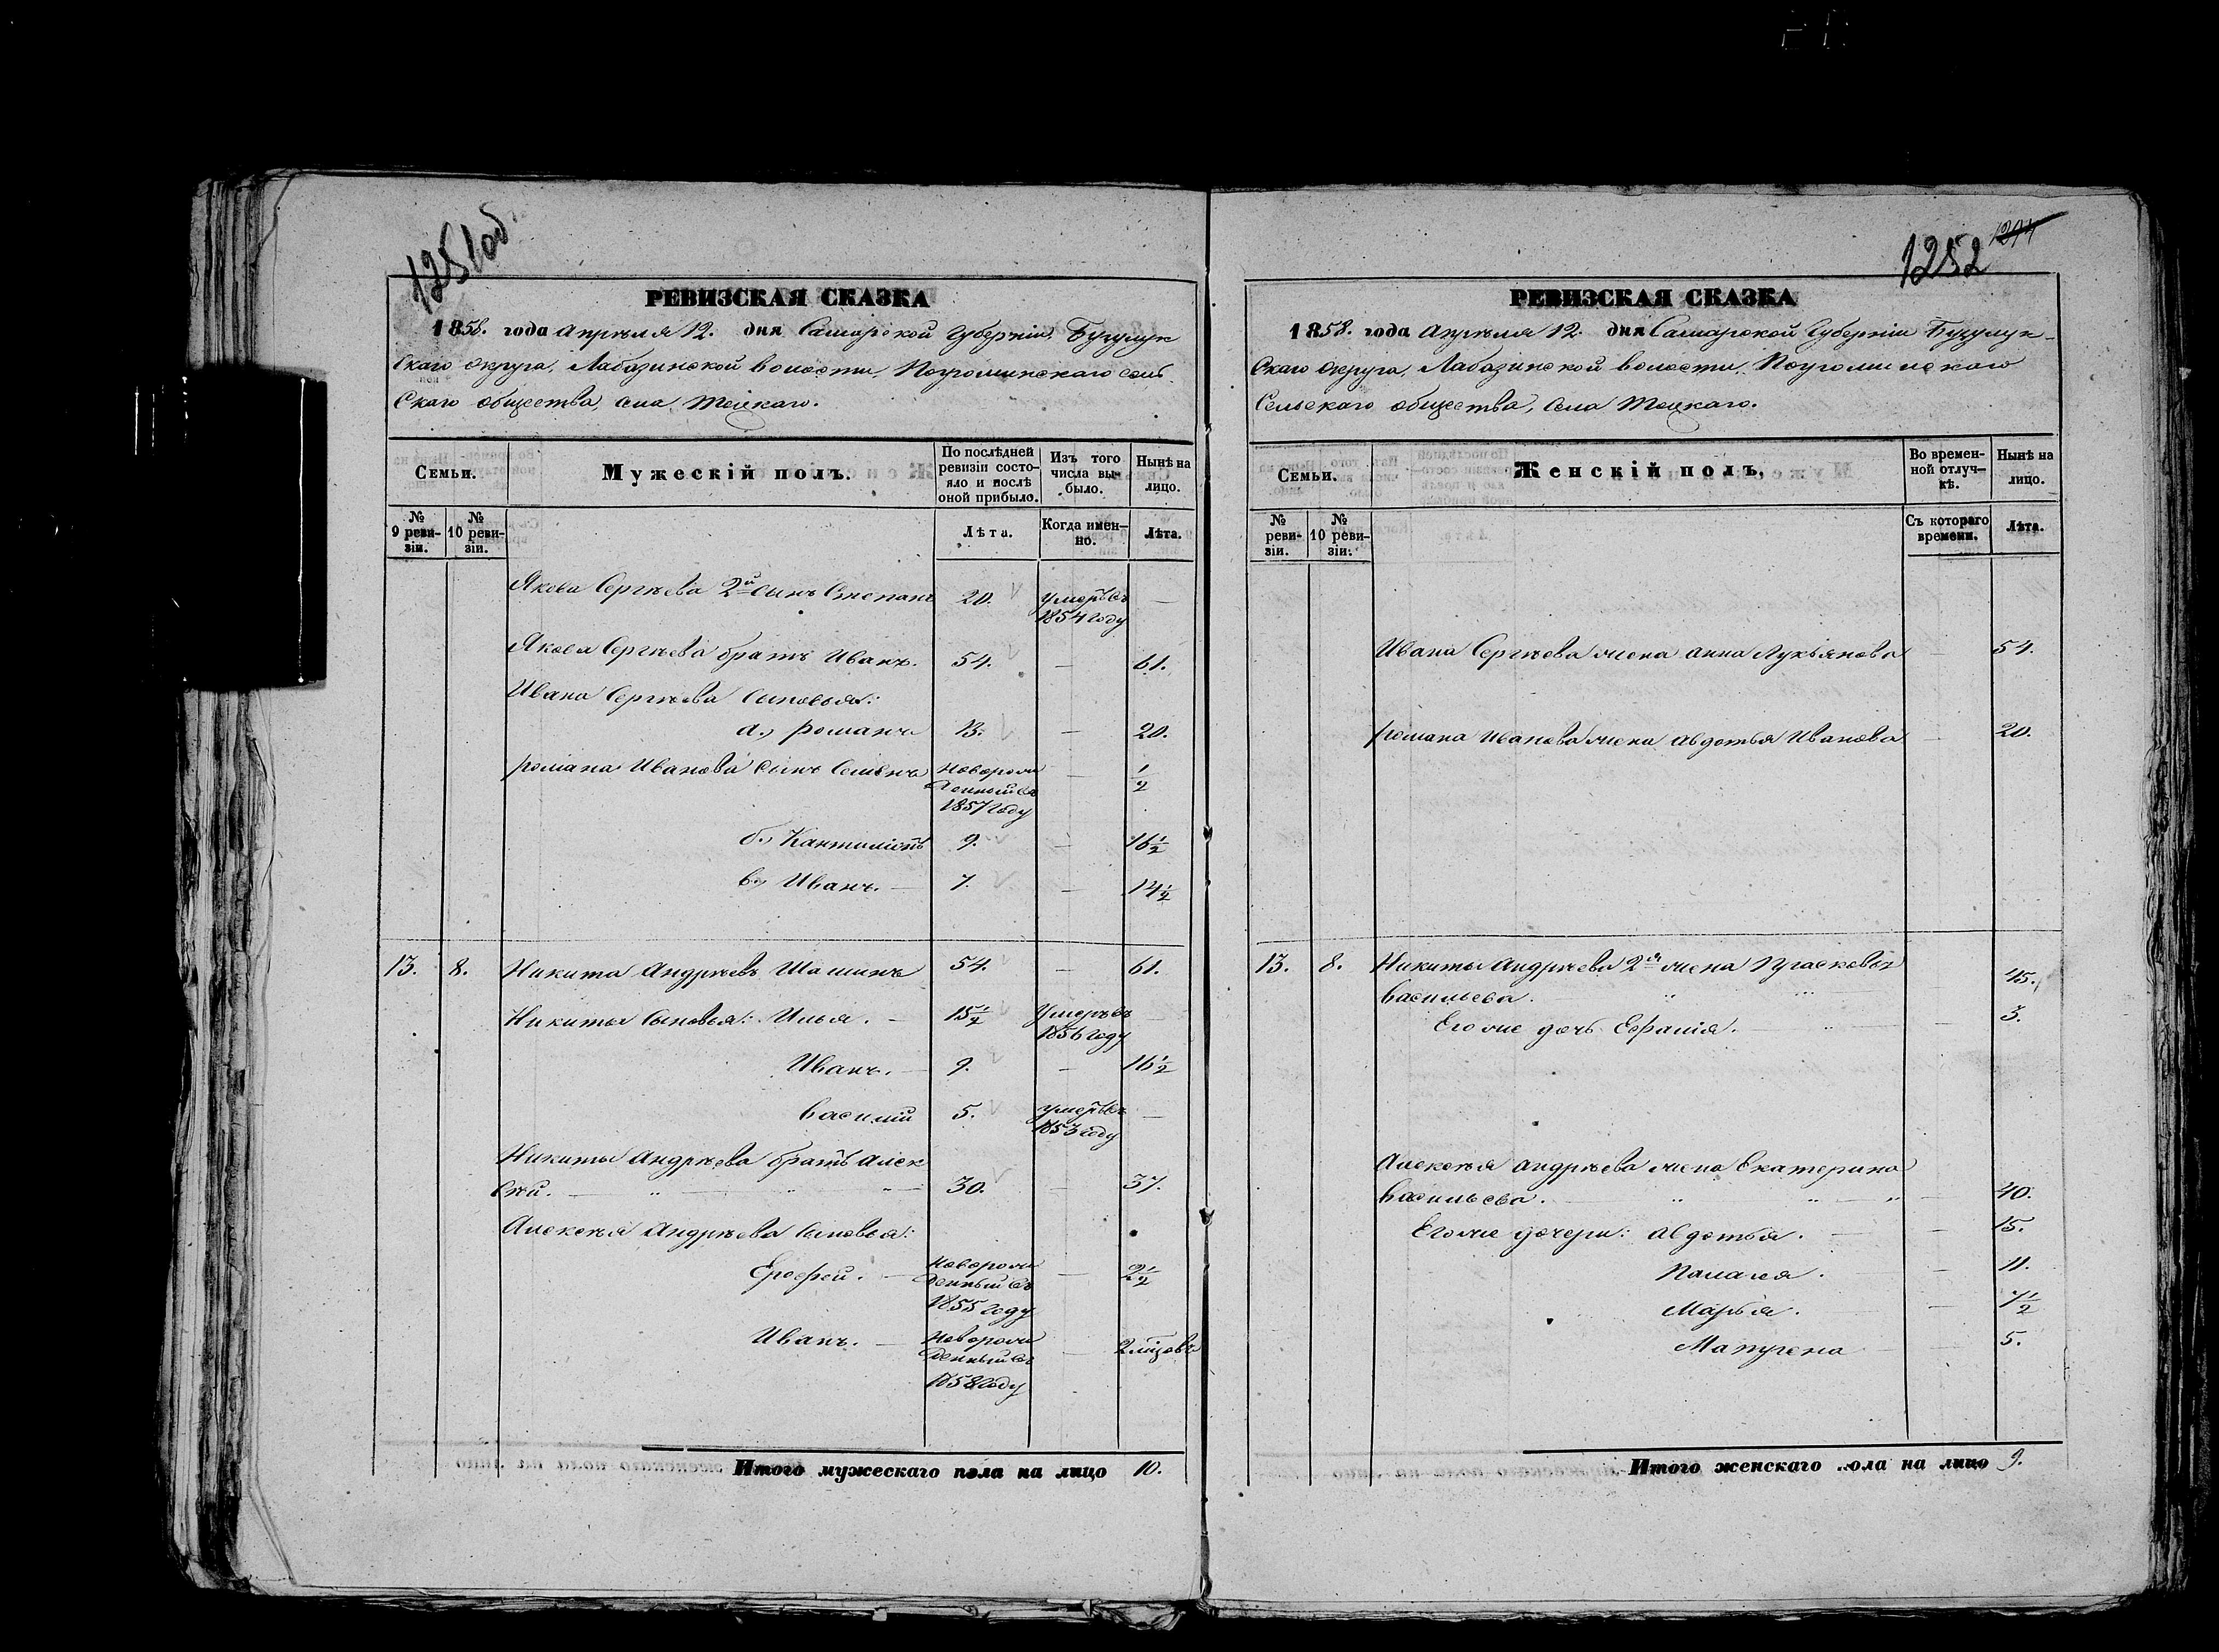 1251об.
РЕВИЗСКАЯ СКАЗКА
1858. года Апрѣля 12. дня Самарской Губерніи, Бугулук
скаго округа, Лабазинской волости, Погроминскаго сель
скаго общества, села Тоцкаго.
Семьи.
Мужескій полъ.
По послѣдней ревизіи состояло и послѣ оной прибыло.
Изъ того числа выбыло.
Нынѣ на лицо.
№ 9 ревизіи.
№ 10 ревизіи.
Лѣта.
Когда именно.
Лѣта.
Якова Сергѣева 2й сынъ Степанъ 20. умеръ въ 1854 году —
Якова Сергѣева братъ Иванъ. 54. — 61.
Ивана Сергѣева сыновья:
а., Романъ 13. — 20.
Романа Иванова сынъ Семенъ новорожденный въ 1857 году — 1/2
б., 9. — 16 1/2
в., Иванъ. — 7. — 14 1/2
13. 8. Никита Андрѣевъ 54. — 61.
Никиты сыновья: Илья. — 15 1/2 Умеръ въ 1856 году —
Иванъ. — 9. — 16 1/2
Василій 5. умеръ въ 1853 году —
Никиты Андрѣева братъ Алек
сѣй. — 30. — 37.
Алексѣя Андрѣева сыновья:
Ерофей. — новорожденный въ 1855 году — 2 1/2
Иванъ. — новорожденный въ 1858 году —
Итого мужескаго пола на лицо 10.
1252 1274
РЕВИЗСКАЯ СКАЗКА
1858. года Апрѣля 12. дня Самарской Губерніи Бугулук-
скаго округа, Лабазинской волости, Погроминскаго
сельскаго общества, села Тоцкаго.
Семьи.
Женскій полъ.
Во временной отлучкѣ.
Нынѣ на лицо.
№ ревизіи.
№ 10 ревизіи.
Съ котораго времени.
Лѣта.
Ивана Сергѣева жена Анна Лукьянова — 54.
Романа Иванова жена Авдотья Иванова — 20.
13. 8. Никиты Андрѣева 2я жена Прасковья
Васильева. 45.
Его же дочь — 3.
Алексѣя Андрѣева жена Екатерина
Васильева. — 40.
Его же дочери: Авдотья. — 15.
— 11.
Марья. — 7 1/2
— 5.
Итого женскаго пола на лицо 9.